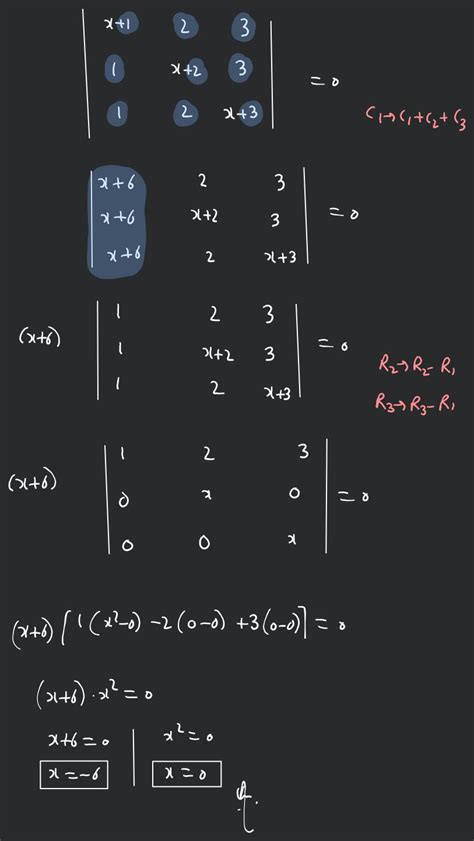 | x+1 2 3 |
| 1 x+2 3 | = 0
| 1 2 x+3 | C₁→C₁+C₂+C₃
| x+6 2 3 |
| x+6 x+2 3 | = 0
| x+6 2 x+3 |
| 1 2 3 |
(x+6) | 1 x+2 3 | = 0
| 1 2 x+3 | R₂→R₂-R₁
R₃→R₃-R₁
| 1 2 3 |
(x+6) | 0 x 0 | = 0
| 0 0 x |
(x+6) [1(x²-0) -2(0-0) +3(0-0)] = 0
(x+6)·x² = 0
x+6=0 | x²=0
x=-6 | x=0